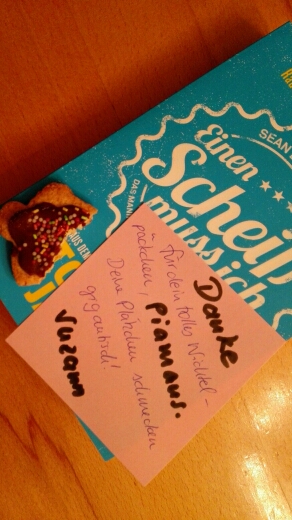 SEAN
Einen
Scheiß
muss ich
DAS MAN
Danke
für dein tolles Wichtel-
päckchen, Piamaus.
Deine Plätzchen schmecken
gigantisch!